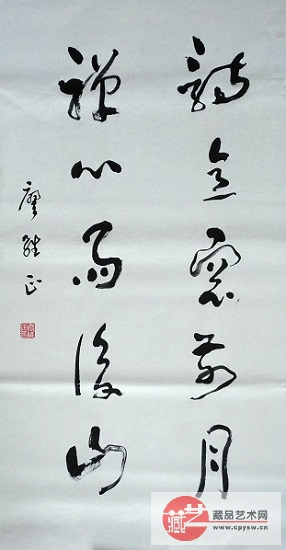 詩意窗前月
禪心後山
廖正
藏品艺术网
www.cpysw.cn